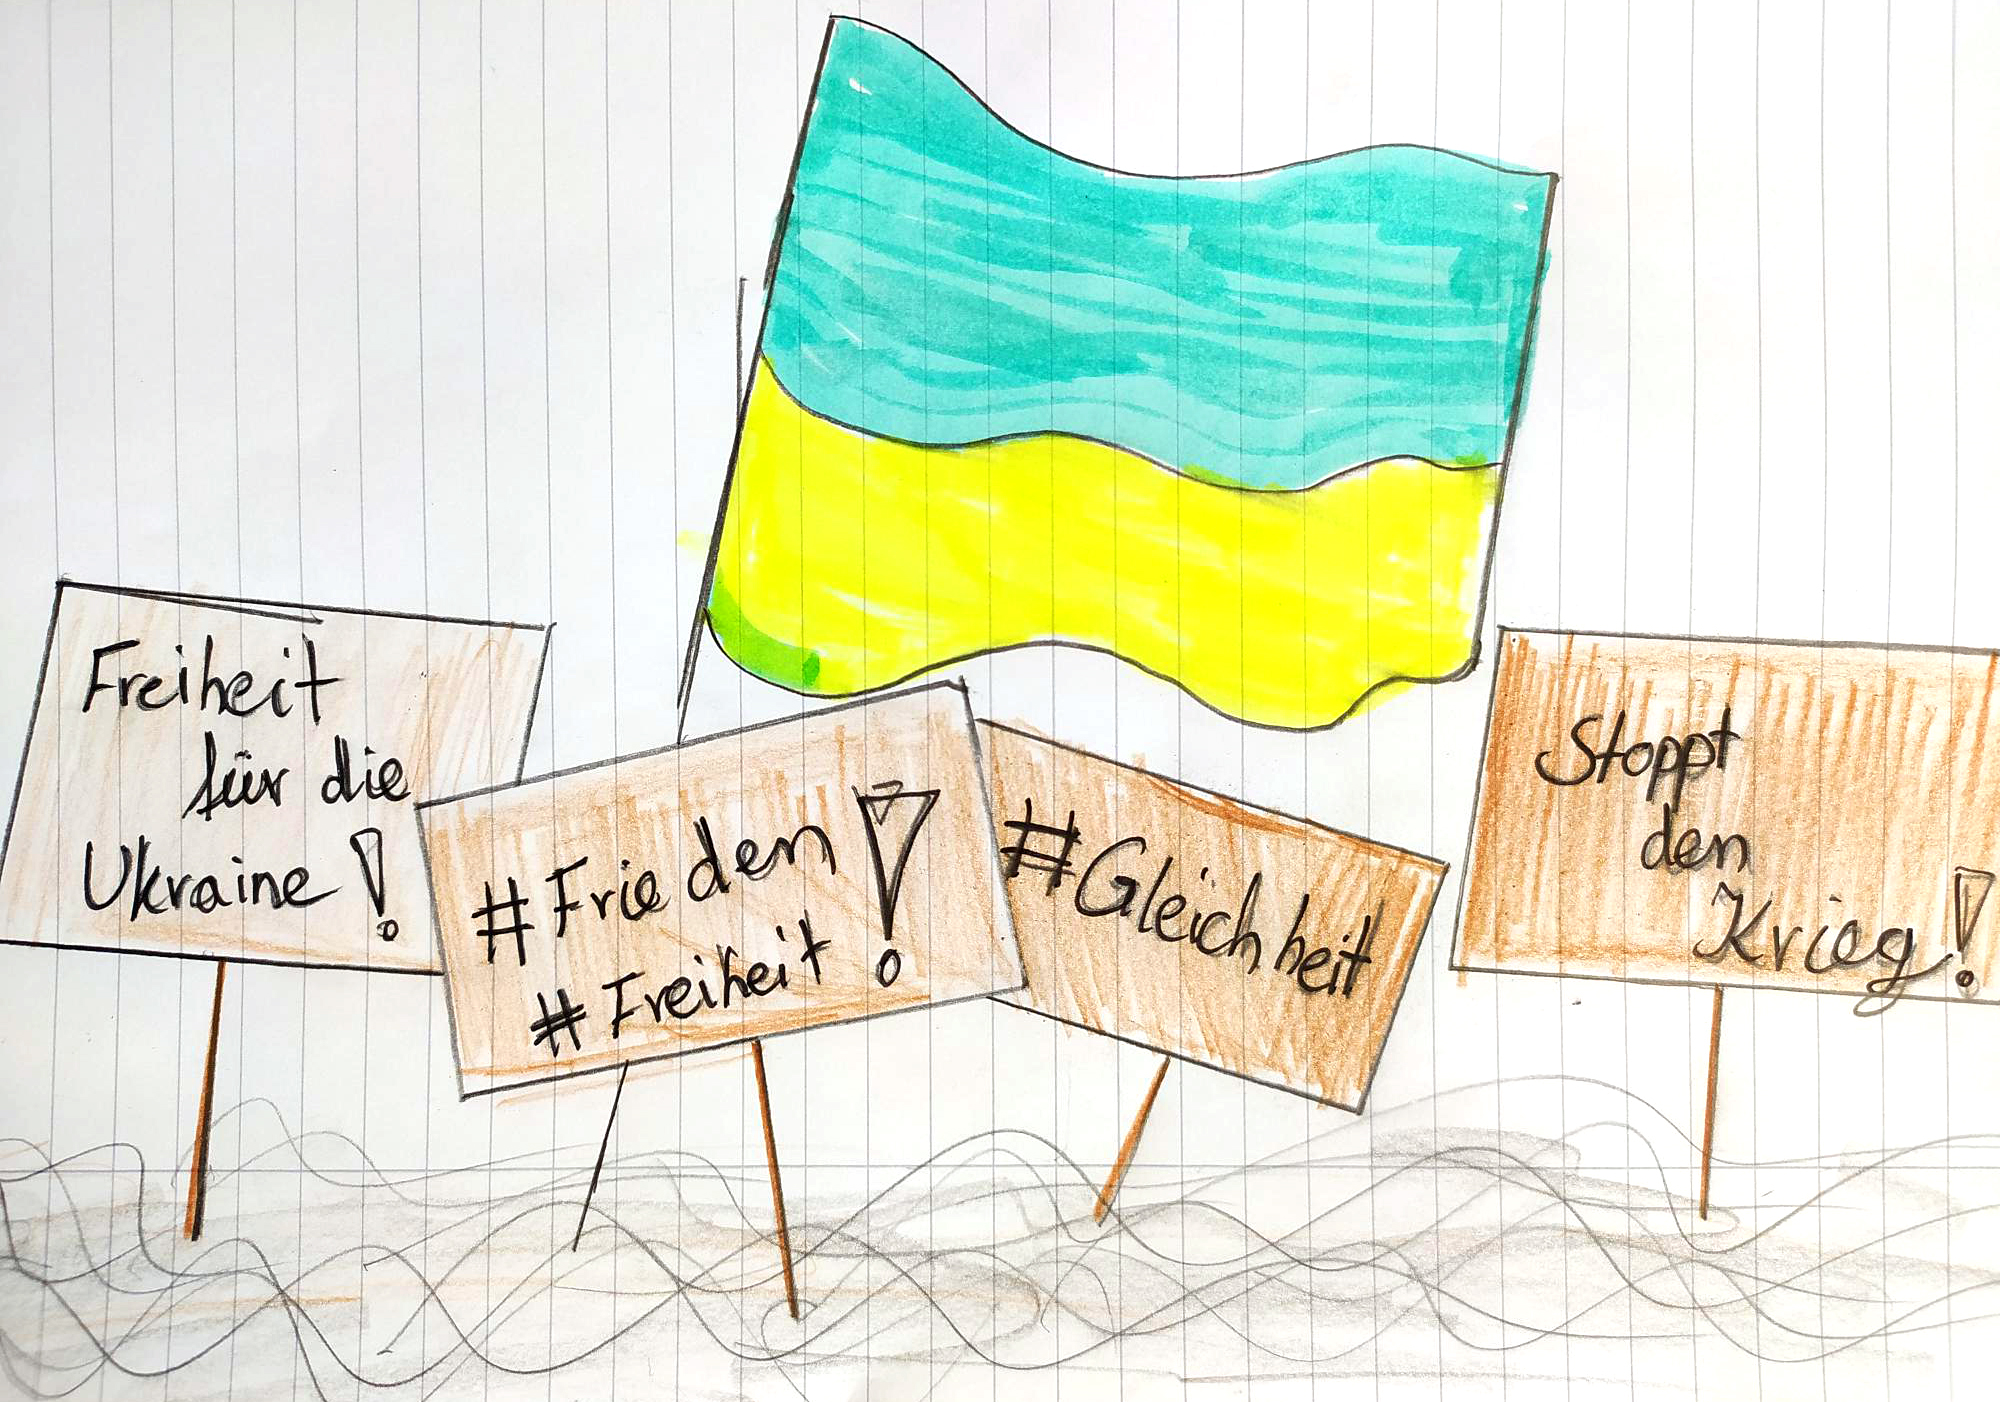 Freiheit
für die
Ukraine!
#Frieden!
#Freiheit
#Gleichheit
Stoppt
den
Krieg!